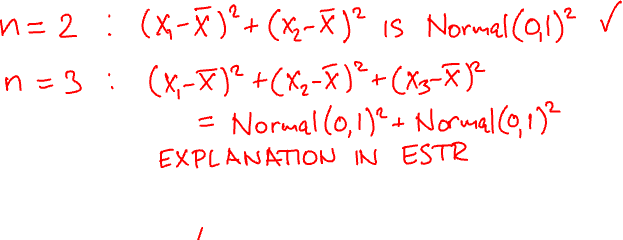 n = 2 : (X₁-X̅)² + (X₂-X̅)² is Normal(0,1)² ✓
n = 3 : (X₁-X̅)² + (X₂-X̅)² + (X₃-X̅)²
= Normal(0,1)² + Normal(0,1)²
EXPLANATION IN ESTR